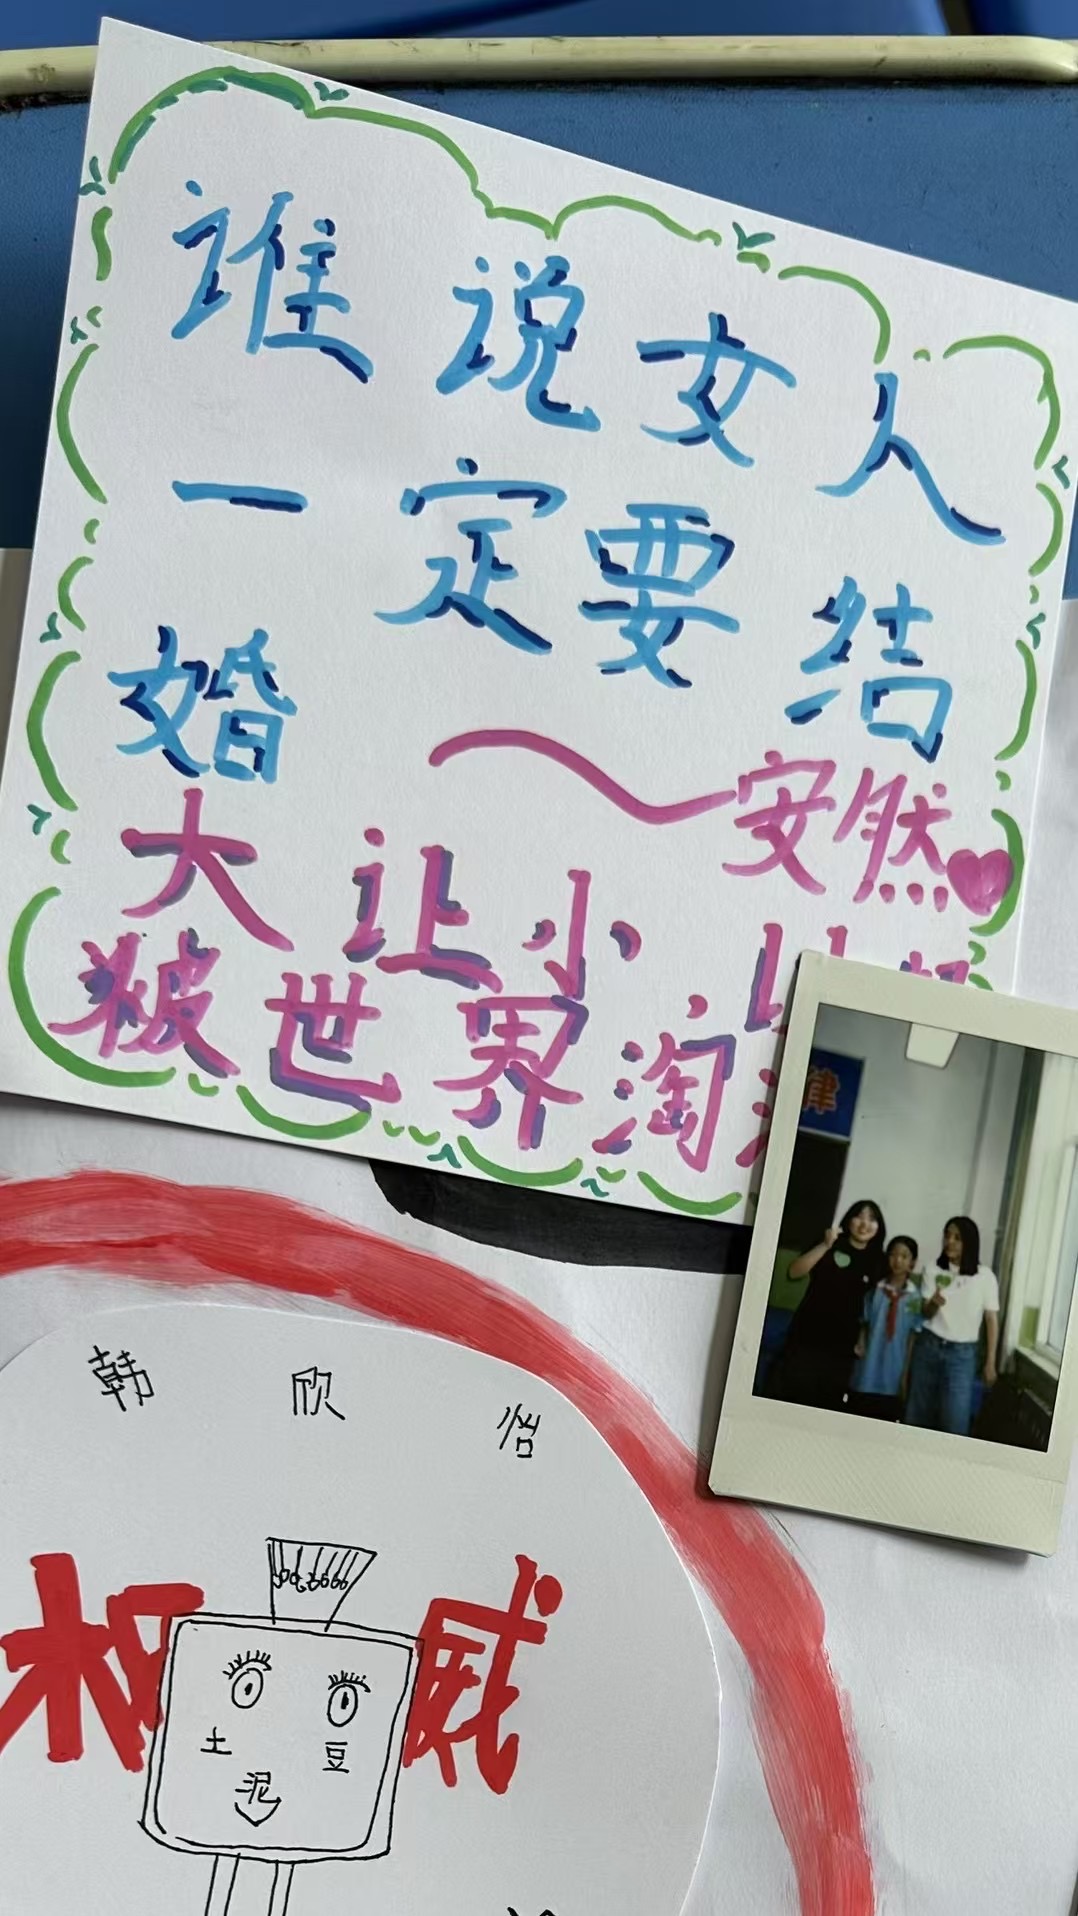 谁说女人
一定要结
婚
～安然
大让小
被世界淘
律
韩 欣 怡
权 威
土 豆
泥